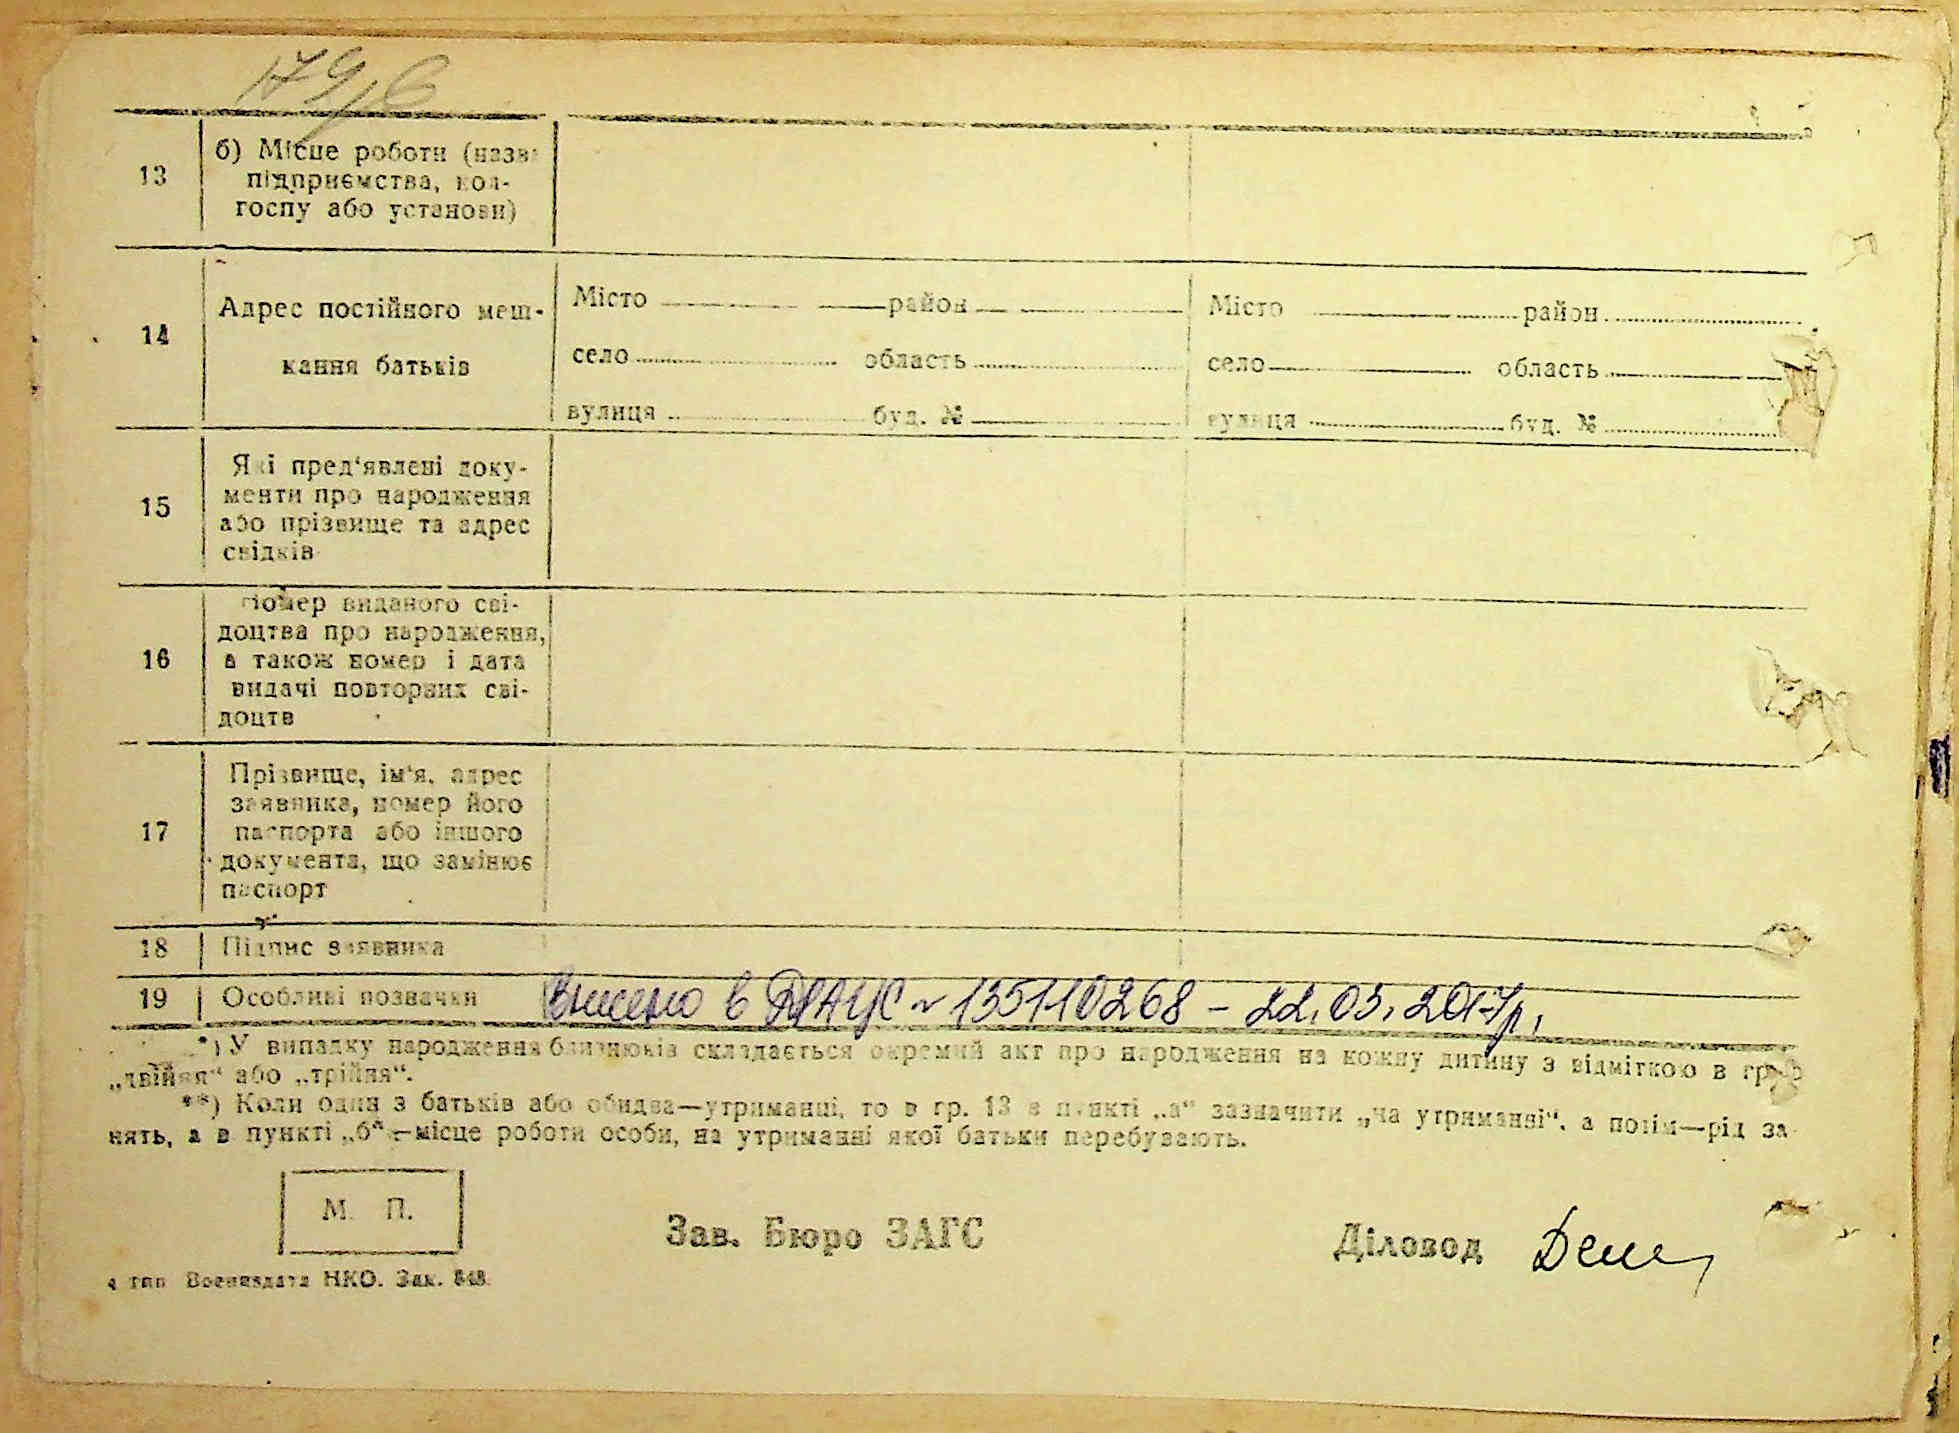 179
13
б) Місце роботи (назва
підприємства, кол-
госпу або установи)
14
Адрес постійного меш-
кання батьків
Місто район
село область
вулиця буд. №
Місто район
село область
вулиця буд. №
15
Які пред'явлені доку-
менти про народження
або прізвище та адрес
свідків
16
Номер виданого сві-
доцтва про народження,
а також номер і дата
видачі повторних сві-
доцтв
17
Прізвище, ім'я, адрес
заявника, номер його
паспорта або іншого
документа, що замінює
паспорт
18 Підпис заявника
19 Особливі позначки Внесено в ДРАЦС № 135110268 – 22.03.2017р.
*) У випадку народження близнюків складається окремий акт про народження на кожну дитину з відміткою в гр.
„двійня“ або „трійня“.
**) Коли один з батьків або обидва—утриманці, то в гр. 13 в пункті „а“ зазначити „на утриманні“, а потім—рід за-
нять, а в пункті „б“—місце роботи особи, на утриманні якої батьки перебувають.
М. П.
Зав. Бюро ЗАГС
Діловод
тип Воениздата НКО. Зак. 848.